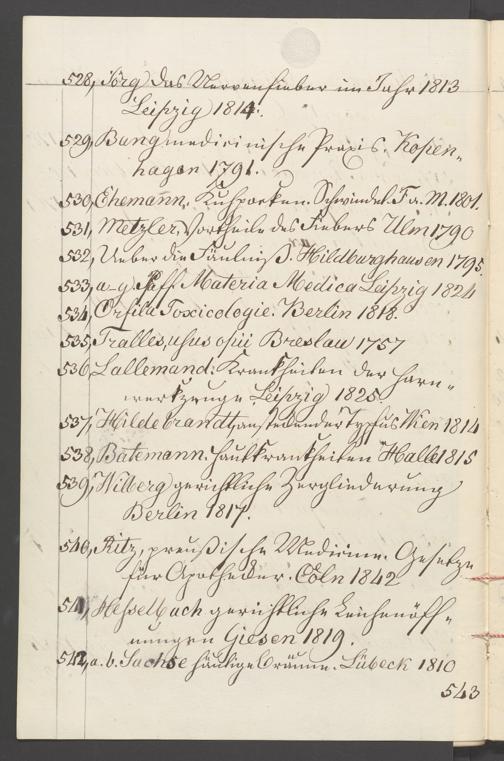 528, Jörg das Nervenfieber im Jahr 1813
Leipzig 1814.
529, Bang medicinische Praxis. Kopen-
hagen 1791.
530, Ehemann, Kuhpocken. Schwindel. F. a. M. 1801.
531, Metzler, Vortheile des Fiebers Ulm 1790
532, Ueber die Fäulniß. Hildburghausen 1795.
533, a-g Pfaff Materia Medica Leipzig 1824
534, Orfila Toxicologie. Berlin 1818.
535, Tralles, usus opii Breslau 1757
536, Lallemand: Krankheiten der Harn-
werkzeuge Leipzig 1825.
537, Hildebrandt, ansteckender Typhus Wien 1814
538, Batemann. Hautkrankheiten Halle 1815
539, Wilberg gerichtliche Zergliederung
Berlin 1817.
540, Ritz, preußische Medicin. Gesetze
für Apotheker. Cöln 1842
541, Hesselbach gerichtliche Leichenöff-
nungen Giesen 1819.
542, a. b. Sachse häutige Bräune. Lübeck 1810
543